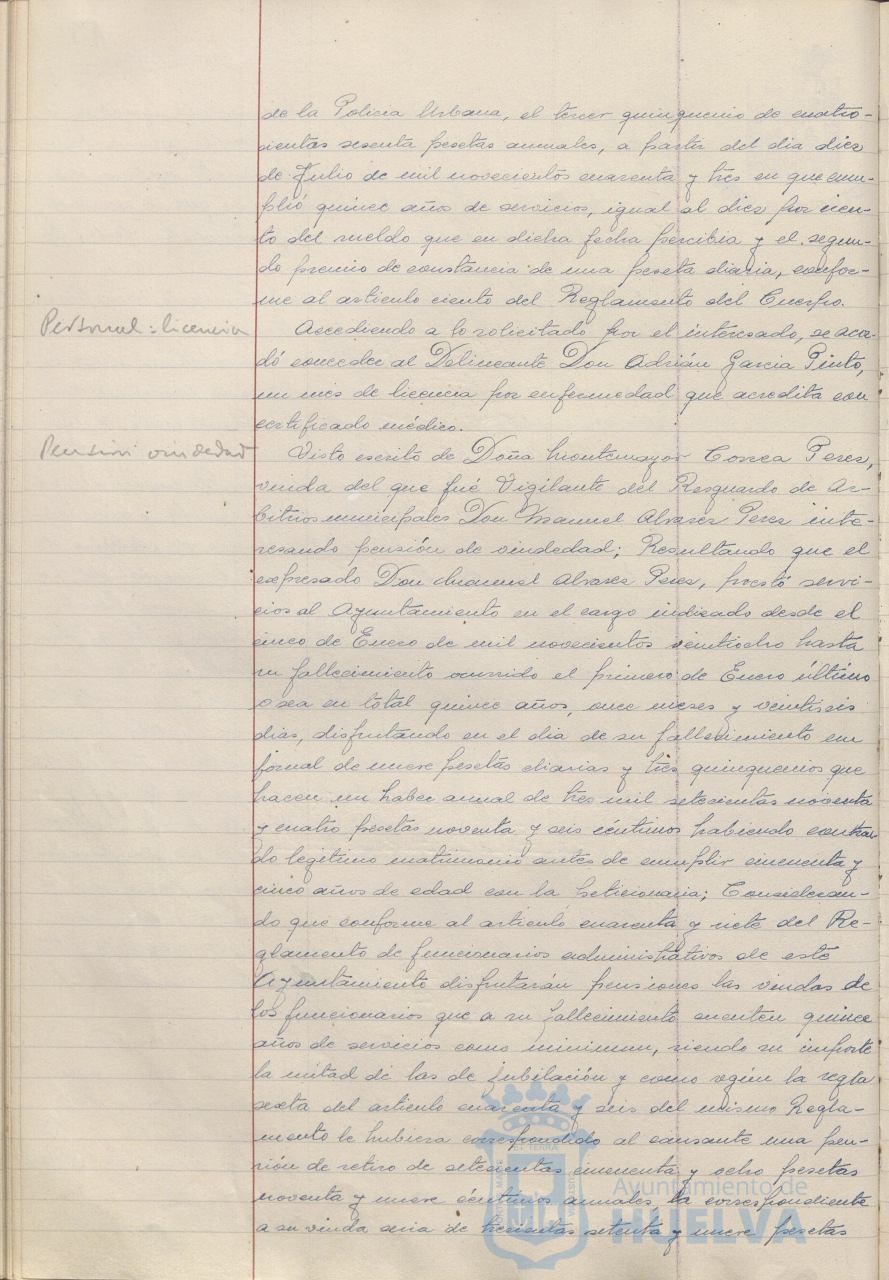 de la Policia Urbana, el tercer quinquenio de cuatro-
cientas sesenta pesetas anuales, a partir del dia diez
de Julio de mil novecientos cuarenta y tres en que cum-
plió quince años de servicios, igual al diez por cien-
to del sueldo que en dicha fecha percibia y el segun-
do premio de constancia de una peseta diaria, confor-
me al articulo ciento del Reglamento del Cuerpo.
Personal: licencia
Accediendo a lo solicitado por el interesado, se acor-
dó conceder al Delineante Don Adrián Garcia Pinto,
un mes de licencia por enfermedad que acredita con
certificado médico.
Pensión viudedad
Visto escrito de Doña Montemayor Correa Perez,
viuda del que fué Vigilante del Resguardo de Ar-
bitrios municipales Don Manuel Alvarez Perez inte-
resando pensión de viudedad; Resultando que el
expresado Don Manuel Alvarez Perez, prestó servi-
cios al Ayuntamiento en el cargo indicado desde el
cinco de Enero de mil novecientos veintiocho hasta
su fallecimiento ocurrido el primero de Enero último
o sea en total quince años, once meses y veintiseis
dias, disfrutando en el dia de su fallecimiento un
jornal de nueve pesetas diarias y tres quinquenios que
hacen un haber anual de tres mil setecientas noventa
y cuatro pesetas noventa y seis céntimos habiendo contrai-
do legitimo matrimonio antes de cumplir cincuenta y
cinco años de edad con la peticionaria; Consideran-
do que conforme al articulo cuarenta y siete del Re-
glamento de funcionarios administrativos de este
Ayuntamiento disfrutarán pensiones las viudas de
los funcionarios que a su fallecimiento cuenten quince
años de servicios como minimun, siendo su importe
la mitad de las de jubilación y como según la regla
sexta del articulo cuarenta y seis del mismo Regla-
mento le hubiera correspondido al causante una pen-
sión de retiro de setecientas cincuenta y ocho pesetas
noventa y nueve céntimos anuales, la correspondiente
a su viuda seria de trescientas setenta y nueve pesetas
Ayuntamiento de
HUELVA